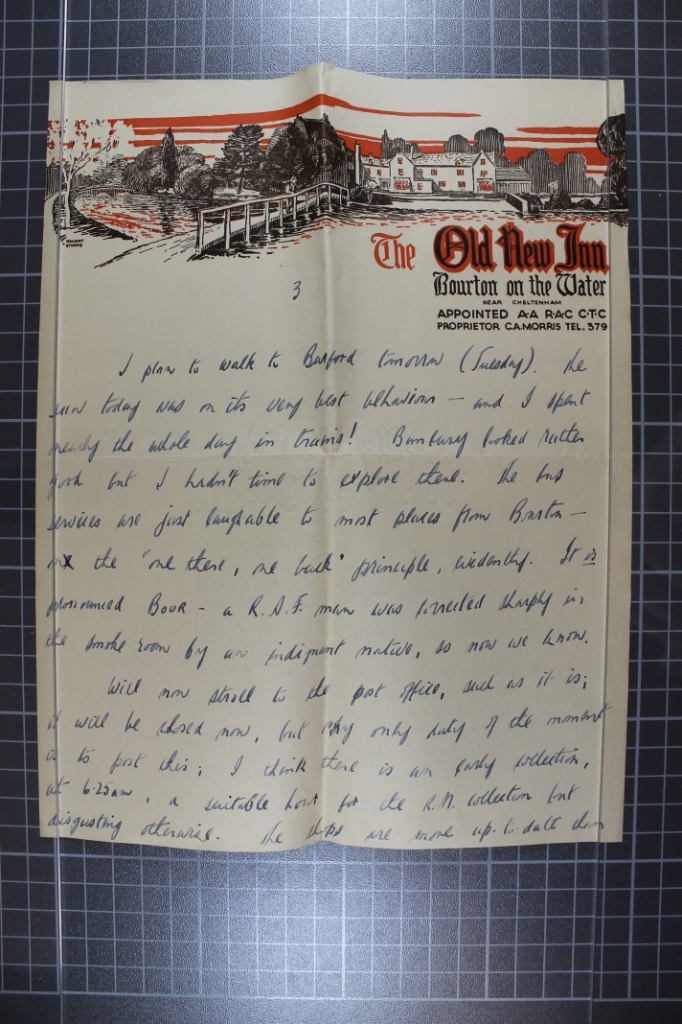 The Old New Inn
Bourton on the Water
NEAR CHELTENHAM
APPOINTED A·A R·A·C C·T·C
PROPRIETOR C.A.MORRIS TEL. 379
3
I plan to walk to Burford tomorrow (Tuesday). The
sun today was on its very best behaviour — and I spent
nearly the whole day in trains! Banbury looked rather
good but I hadn't time to explore there. The bus
services are just laughable to most places from Bourton —
on the "one there, one back" principle, evidently. It is
pronounced BOOR - a R.A.F. man was corrected sharply in
the smoke room by an indignant native, so now we know.
Will now stroll to the post office, such as it is;
it will be closed now, but my only duty of the moment
is to post this; I think there is an early collection,
at 6.25am, a suitable hour for the R.M. collection but
disgusting otherwise. The shops are more up-to-date than